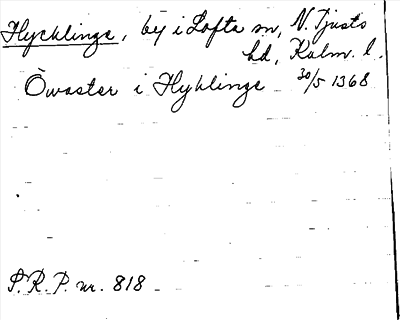 Hycklinge, by i Lofta sn, N. Tjusts
hd, Kalm. l.
Öwaster i Hyklinge 30/5 1368
S.R.P. nr. 818